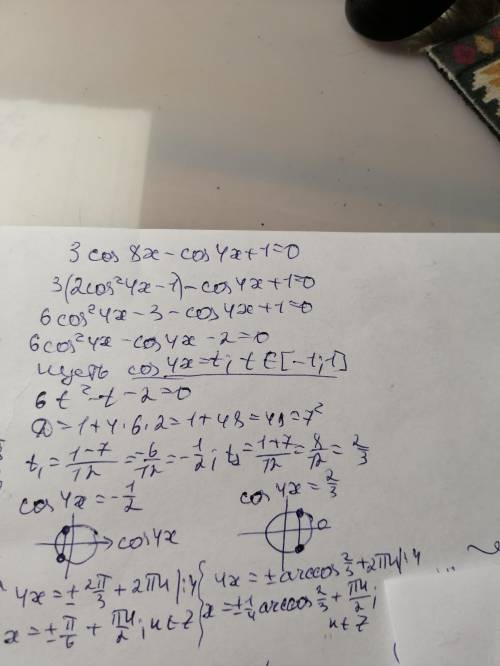 3 cos 8x - cos 4x + 1 = 0
3(2cos²4x - 1) - cos 4x + 1 = 0
6cos²4x - 3 - cos 4x + 1 = 0
6cos²4x - cos 4x - 2 = 0
пусть cos 4x = t; t ∈ [-1; 1]
6t² - t - 2 = 0
D = 1 + 4·6·2 = 1 + 48 = 49 = 7²
t₁ = (1-7)/12 = -6/12 = -1/2; t₂ = (1+7)/12 = 8/12 = 2/3
cos 4x = -1/2 cos 4x = 2/3
cos 4x
4x = ± 2π/3 + 2πn /:4 4x = ± arccos 2/3 + 2πn /:4
x = ± π/6 + πn/2; n ∈ Z x = ± 1/4 arccos 2/3 + πn/2;
n ∈ Z